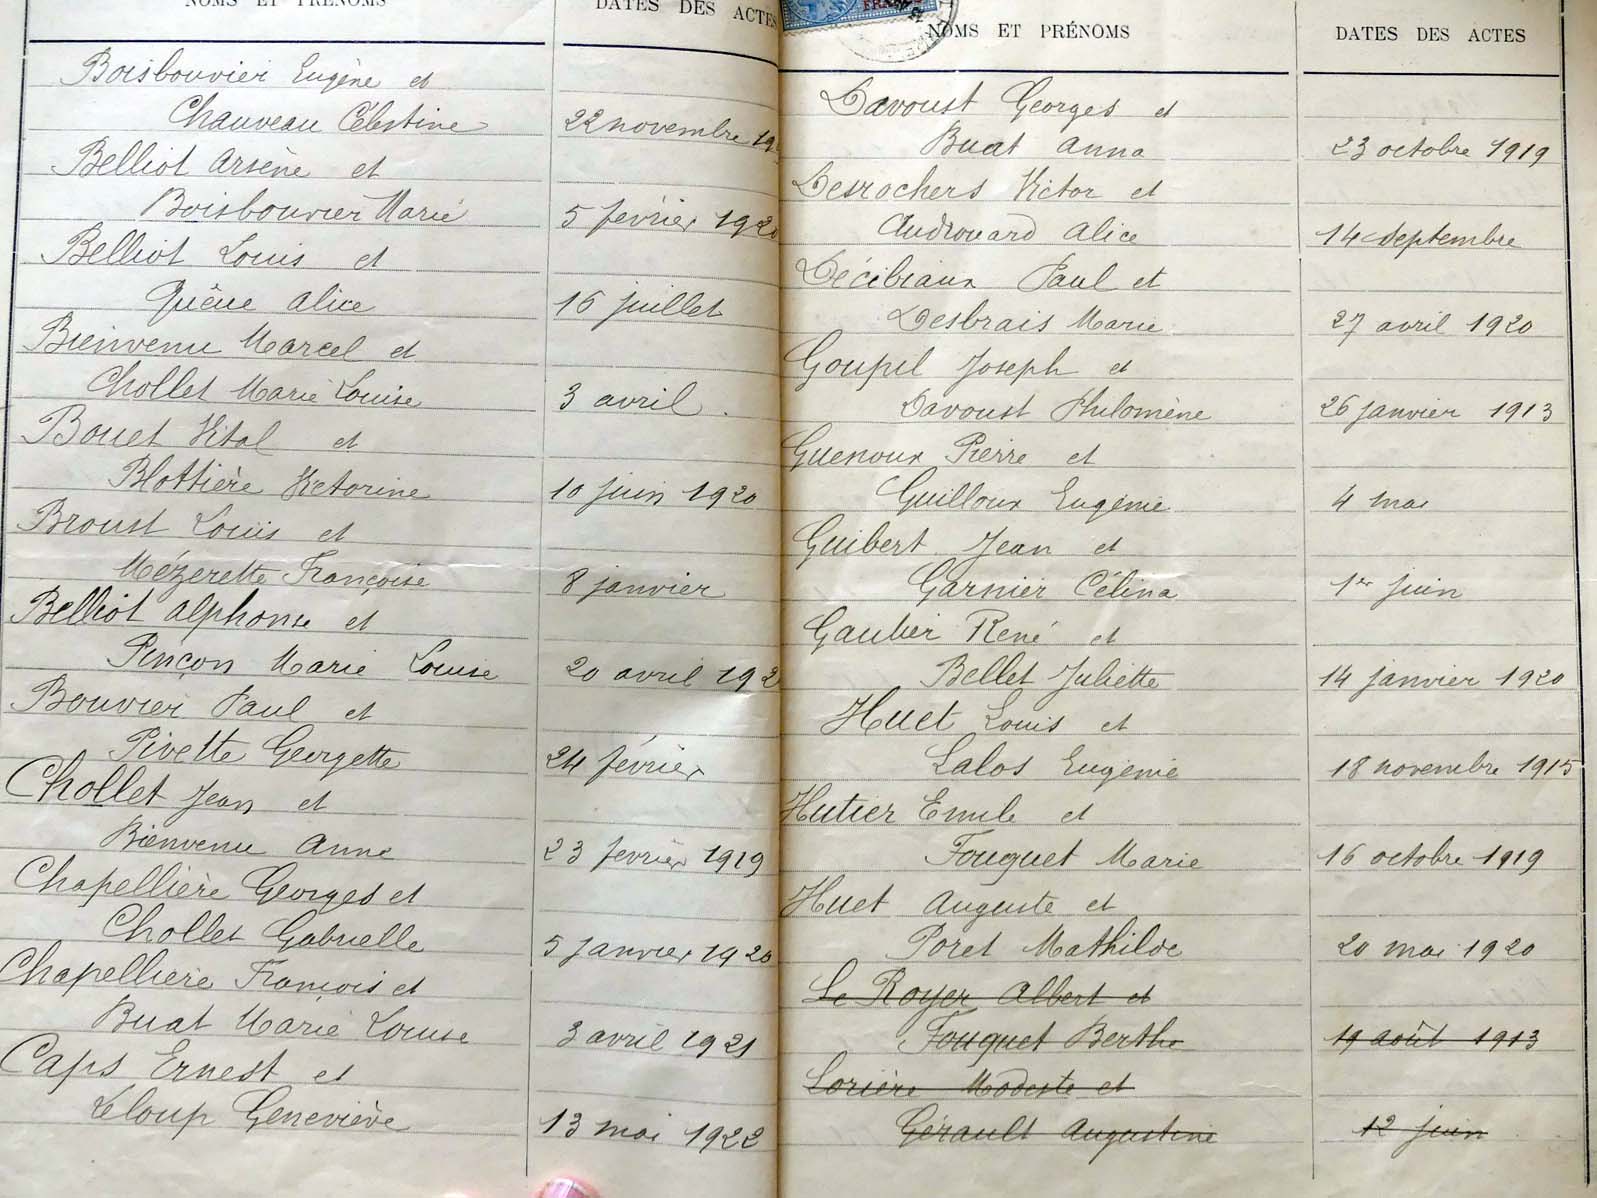 NOMS ET PRÉNOMS DATES DES ACTES
Boisbouvier Eugène et
Chauveau Célestine 22 novembre 19
Belliot Arsène et
Boisbouvier Marie 5 février 1920
Belliot Louis et
Quêue Alice 16 juillet
Bienvenu Marcel et
Chollet Marie Louise 3 avril
Bouet Vital et
Blottière Victorine 10 juin 1920
Broust Louis et
Mézerette Françoise 8 janvier
Belliot Alphonse et
Pinçon Marie Louise 20 avril 192
Bouvier Paul et
Pivette Georgette 24 février
Chollet Jean et
Bienvenu Anne 23 février 1919
Chapellière Georges et
Chollet Gabrielle 5 janvier 1920
Chapellière François et
Buat Marie Louise 3 avril 1921
Caps Ernest et
Leloup Geneviève 13 mai 1922
NOMS ET PRÉNOMS DATES DES ACTES
Davoust Georges et
Buat Anna 23 octobre 1919
Desrochers Victor et
Audrouard Alice 14 septembre
Décibiaux Paul et
Desbrais Marie 27 avril 1920
Goupil Joseph et
Davoust Philomène 26 janvier 1913
Guenoux Pierre et
Guilloux Eugénie 4 mai
Guibert Jean et
Garnier Célina 1er juin
Gautier René et
Bellet Juliette 14 janvier 1920
Huet Louis et
Lalos Eugénie 18 novembre 1915
Hutier Emile et
Fouquet Marie 16 octobre 1919
Huet Auguste et
Poret Mathilde 20 mai 1920
Le Royer Albert et
Fouquet Berthe 19 août 1913
Lorière Modeste et
Gérault Augustine 12 juin